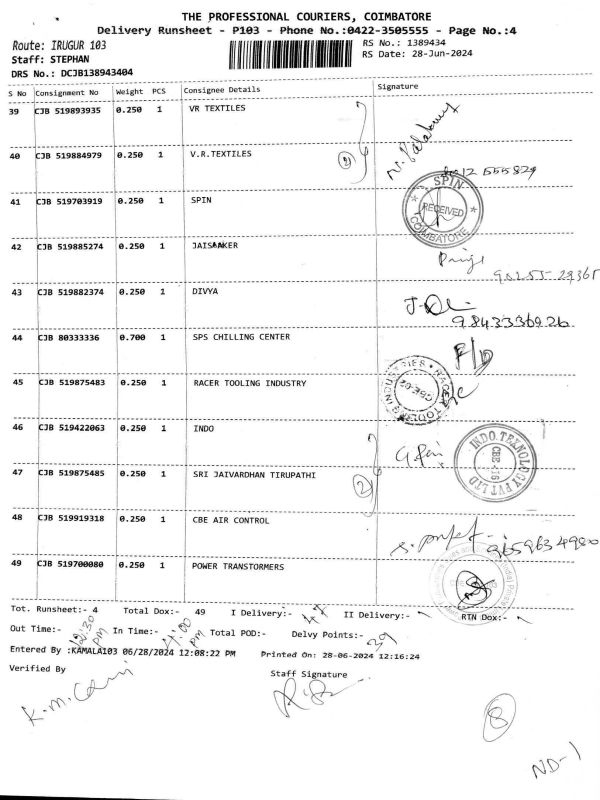 THE PROFESSIONAL COURIERS, COIMBATORE
Delivery Runsheet - P103 - Phone No.:0422-3505555 - Page No.:4
Route: IRUGUR 103
RS No.: 1389434
Staff: STEPHAN
RS Date: 28-Jun-2024
DRS No.: DCJB138943404
S No Consignment No Weight PCS Consignee Details Signature
39 CJB 519893935 0.250 1 VR TEXTILES
40 CJB 519884979 0.250 1 V.R.TEXTILES
2
41 CJB 519703919 0.250 1 SPIN
SPIN
RECEIVED
COIMBATORE
42 CJB 519885274 0.250 1 JAISANKER
43 CJB 519882374 0.250 1 DIVYA
9843333692b
44 CJB 80333336 0.700 1 SPS CHILLING CENTER
F/D
45 CJB 519875483 0.250 1 RACER TOOLING INDUSTRY
46 CJB 519422063 0.250 1 INDO
INDO.TEKNOLOGY PVT LTD
47 CJB 519875485 0.250 1 SRI JAIVARDHAN TIRUPATHI
2
48 CJB 519919318 0.250 1 CBE AIR CONTROL
9659634980
49 CJB 519700080 0.250 1 POWER TRANSTORMERS
Tot. Runsheet:- 4 Total Dox:- 49 I Delivery:- 47 II Delivery:- RTN Dox:-
Out Time:- 12:30 PM In Time:- 4:00 PM Total POD:- Delvy Points:- 39
Entered By :KAMALA103 06/28/2024 12:08:22 PM Printed On: 28-06-2024 12:16:24
Verified By Staff Signature
8
ND-1